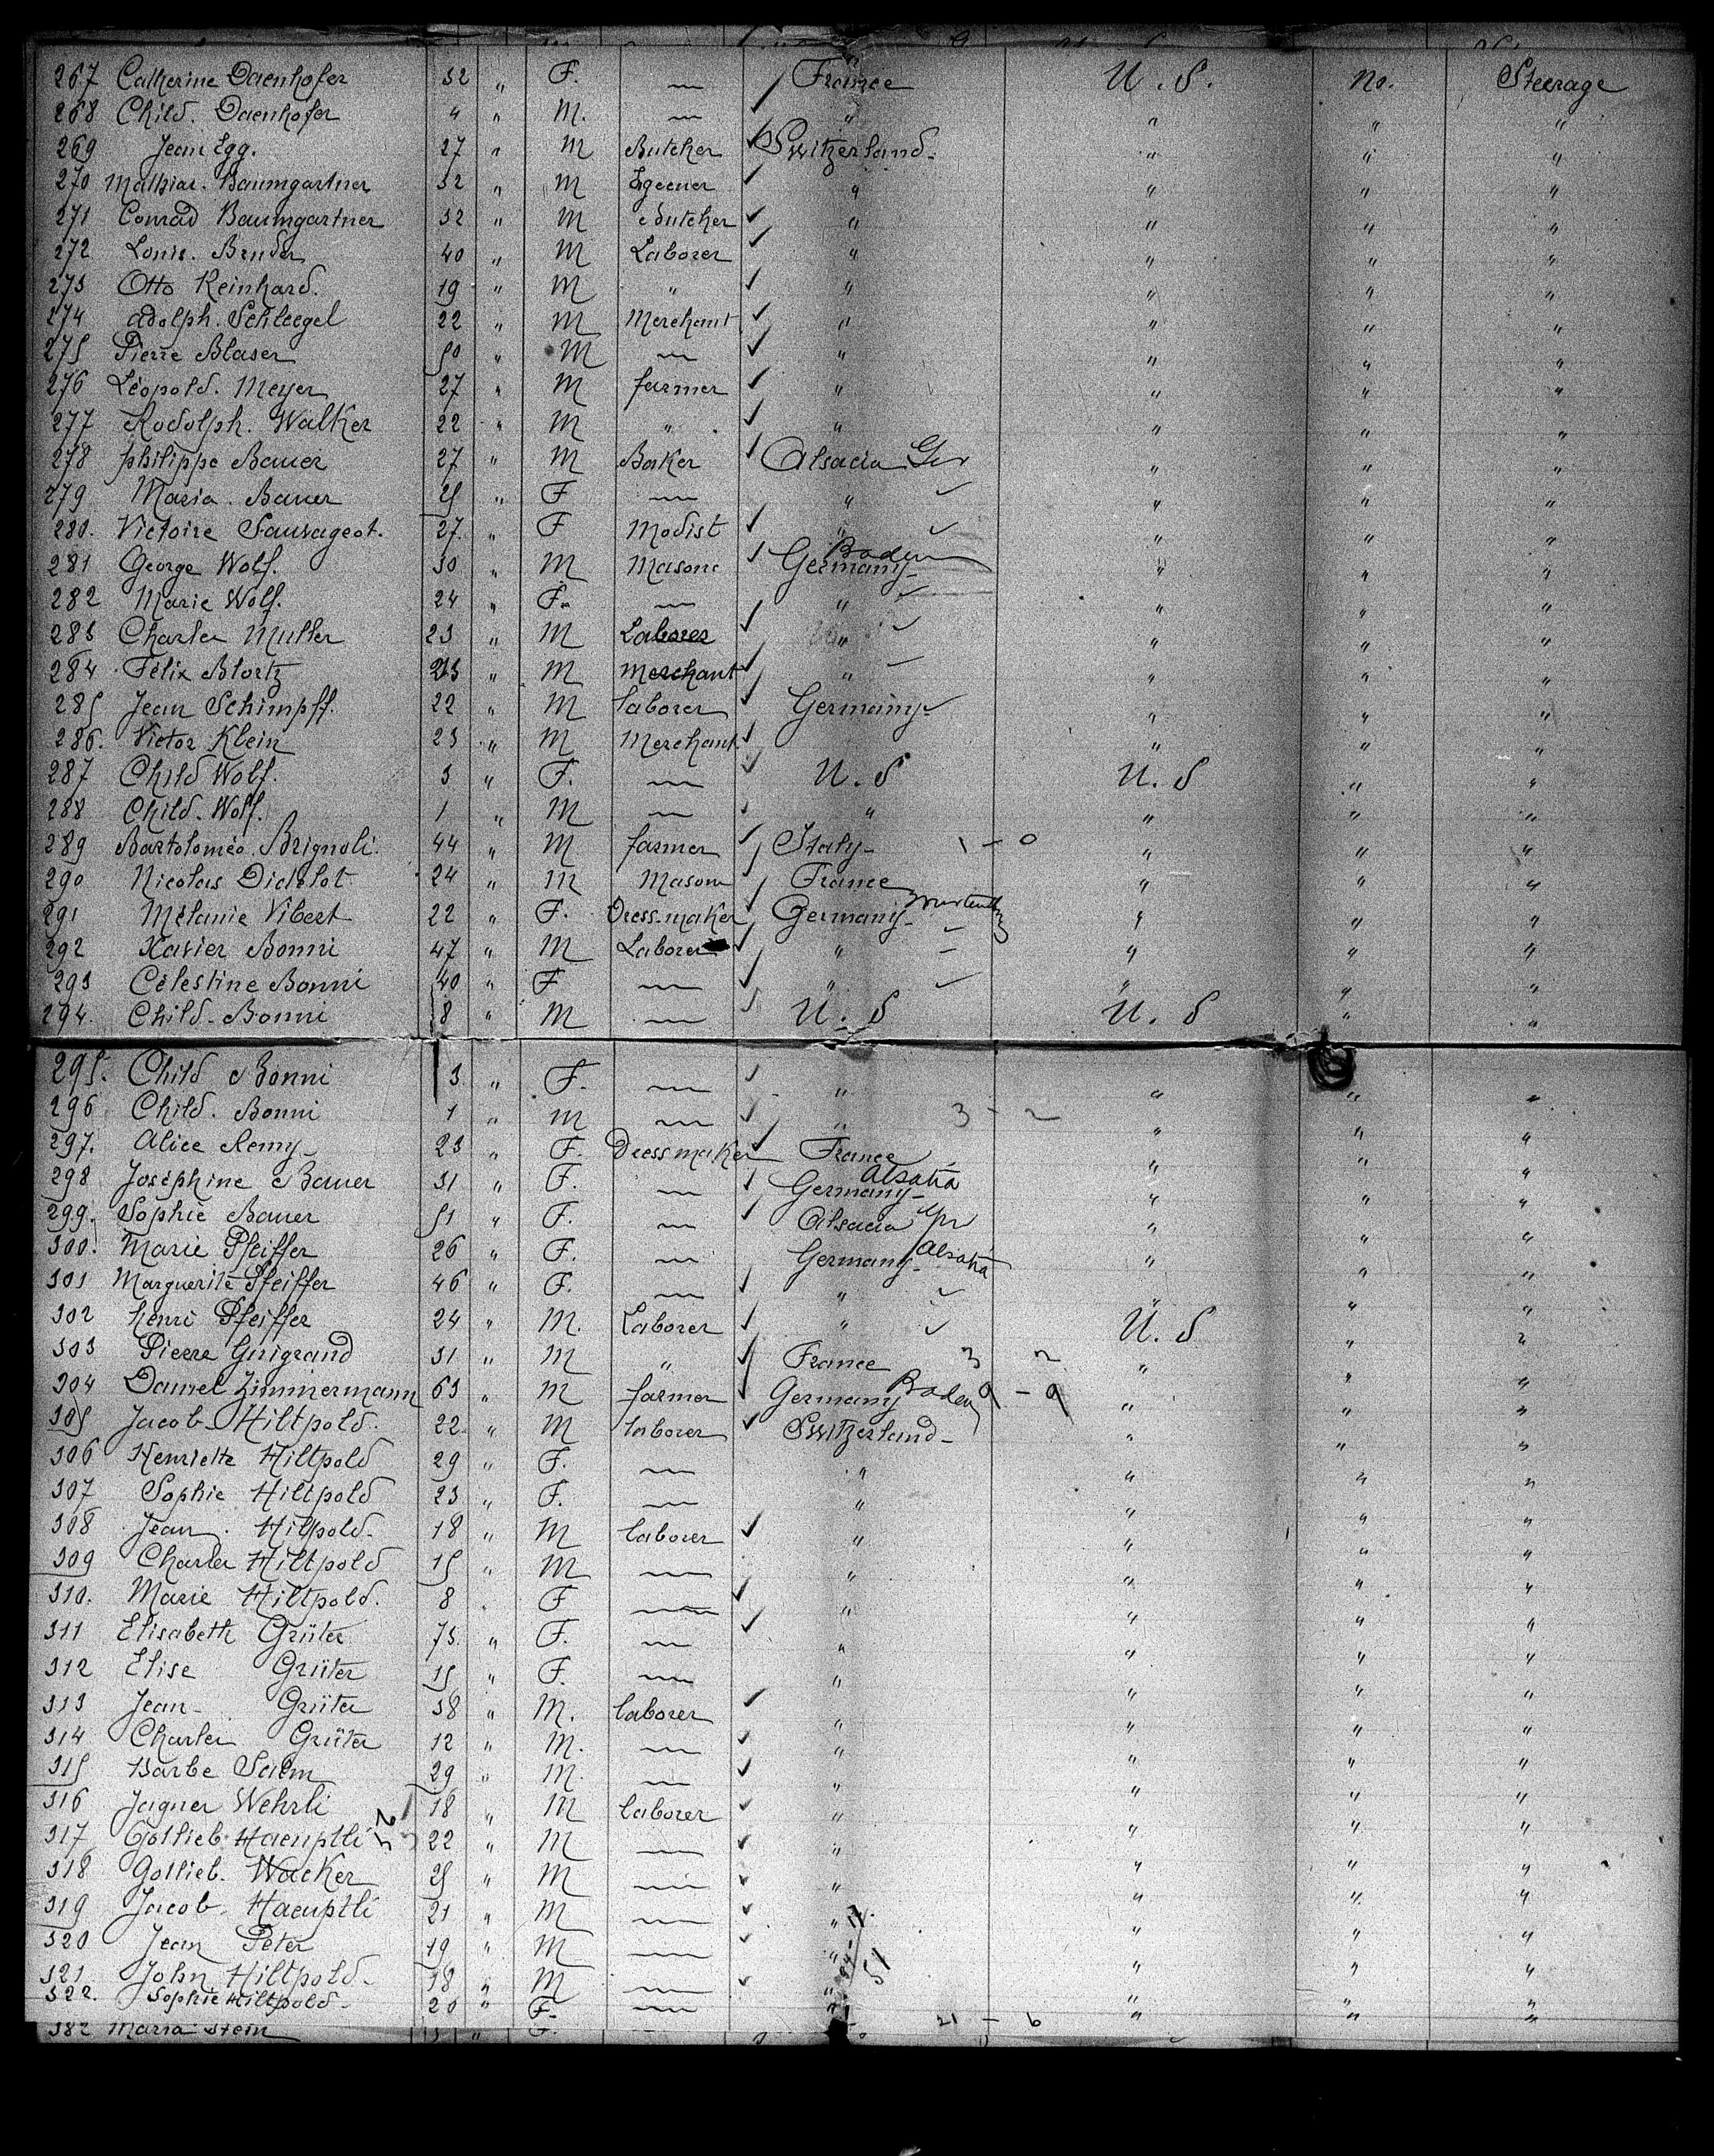 267 Catherine Daenhofer 32 " F. — France U. S. no. Steerage
268 Child. Daenhofer 4 " M. — " " " "
269 Jean Egg. 27 " M Butcher Switzerland. " " "
270 Mathias. Baumgartner 32 " M " " " "
271 Conrad Baumgartner 32 " M Butcher " " " "
272 Louis. Bruder 40 " M Laborer " " " "
273 Otto Reinhard. 19 " M " " " " "
274 Adolph. Schleegel 22 " M Merchant " " " "
275 Pierre Blaser 50 " M — " " " "
276 Léopold. Meyer 27 " M farmer " " " "
277 Rodolph. Walker 22 " M " " " " "
278 philippe Bauer 27 " M Baker Alsacia Ger " " "
279 Maria. Bauer 25 " F. — " " " "
280. Victoire Sausageot. 27. " F Modist " " " "
281 George Wolf. 30 " M Masone Germany Baden " " "
282 Marie Wolf. 24 " F. — " " " "
283 Charles Muller 23 " M Laborer " " " "
284 Félix Blortz 23 " M Merchant " " " "
285 Jean Schimpff. 22 " M laborer Germany " " "
286. Victor Klein 23 " M Merchant " " "
287 Child Wolf. 3 " F. — U. S U. S " "
288 Child. Wolf. 1 " M — " " " "
289 Bartoloméo Brignoli. 44 " M farmer Italy 1 - 0 " " "
290 Nicolas Didelot 24 " M Mason France " " "
291 Mélanie Vibert 22 " F. Dress-maker Germany " " "
292 Xavier Bonni 47 " M Laborer " " " "
293 Célestine Bonni 40 " F — " " " "
294. Child. Bonni 8 " M — U. S U. S " "
295. Child Bonni 3 " F. — " " " "
296 Child. Bonni 1 " M — " 3 - 2 " " "
297. Alice Remy 23 " F. Dressmaker France " " "
298 Joséphine Bauer 31 " F. — Germany Alsatia " " "
299. Sophie Bauer 51 " F. — Alsacia Ger " " "
300. Marie Pfeiffer 26 " F. — Germany Alsatia " " "
301 Marguerite Pfeiffer 46 " F. — " " " "
302 Henri Pfeiffer 24 " M. Laborer " U. S " "
303 Pierre Guigrand 31 " M " France 3 2 " " "
304 Daniel Zimmermann 63 " M farmer Germany Baden 9 - 9 " " "
305 Jacob Hiltpold. 22 " M laborer Switzerland " " "
306 Henriette Hiltpold 29 " F. — " " " "
307 Sophie Hiltpold 23 " F. — " " " "
308 Jean. Hiltpold 18 " M laborer " " " "
309 Charles Hiltpold 15 " M — " " " "
310. Marie Hiltpold. 8 " F — " " " "
311 Elisabeth Grüter 73. " F. — " " " "
312 Elise Grüter 15 " F. — " " " "
313 Jean Grüter 38 " M. laborer " " " "
314 Charles Grüter 12 " M. — " " " "
315 Barbe Salm 29 " M. — " " " "
316 Jagner Wehrli 18 " M laborer " " " "
317 Gottlieb Haeuptli 22 " M — " " " "
318 Gottlieb. Wacker 25 " M — " " " "
319 Jacob. Haeuptli 21 " M — " " " "
320 Jean Peter 19 " M — " " " "
321 John Hiltpold 18 " M — " 51 " " "
322. Sophie Hiltpold 20 " F. — " 21 - 6 " " "
382 Maria Stein " F.